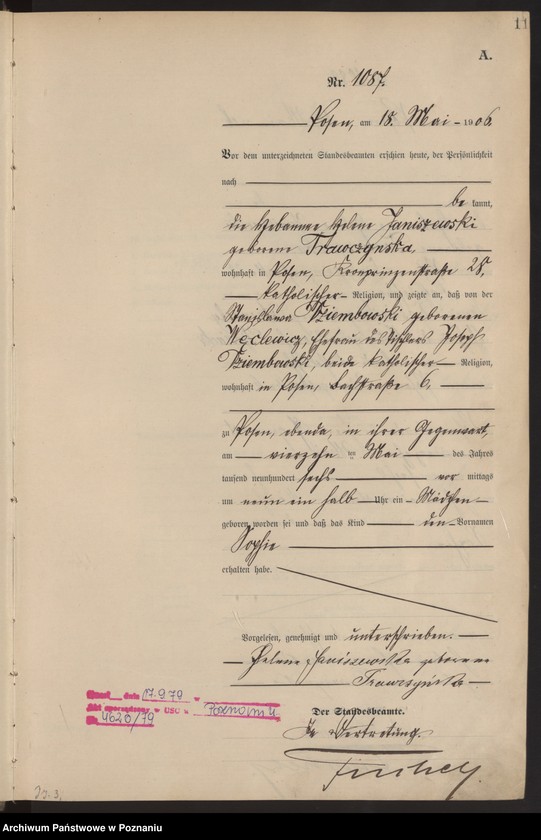 11
A.
Nr. 1087.
Posen, am 18. Mai 1906.
Vor dem unterzeichneten Standesbeamten erschien heute, der Persönlichkeit
nach
be kannt,
die Hebamme Helene Janiszewski
geborene Trawczyńska,
wohnhaft in Posen, Kronprinzenstraße 28,
katholischer Religion, und zeigte an, daß von der
Stanislawa Dziembowski geborenen
Węclewicz, Ehefrau des Tischlers Joseph
Dziembowski, beide katholischer Religion,
wohnhaft in Posen, Bachstraße 6,
zu Posen, ebenda, in ihrer Gegenwart,
am vierzehn ten Mai des Jahres
tausend neunhundert sechs vor mittags
um neun ein halb Uhr ein Mädchen
geboren worden sei und daß das Kind den Vornamen
Sophie
erhalten habe.
Vorgelesen, genehmigt und unterschrieben.
Helene Janiszewska geborene
Trawczyńska
Der Standesbeamte.
In Vertretung.
dnia 17.9.79
Akt sporządzono w USC Poznań
Nr 4626/79
Archiwum Państwowe w Poznaniu